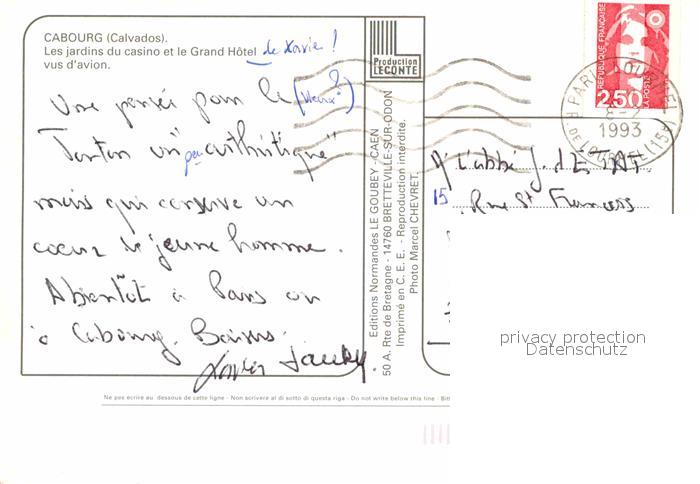 CABOURG (Calvados).
Les jardins du casino et le Grand Hôtel de Xavier !
vus d'avion.
Une pensée pour le (vieux ?)
Tonton un "peu arthritique"
mais qui conserve un
coeur de jeune homme.
A bientôt à Paris ou
à Cabourg. Baisers.
Xavier
Production
LECONTE
Editions Normandes LE GOUBEY - CAEN
50 A. Rte de Bretagne - 14760 BRETTEVILLE-SUR-ODON
Imprimé en C.E.E. - Reproduction interdite.
Photo Marcel CHEVRET.
REPUBLIQUE FRANÇAISE
2,50
LA POSTE
PARIS
1993
(15e)
L'abbé J. d'ETAT
15 Rue St
privacy protection
Datenschutz
Ne pas écrire au dessous de cette ligne - Non scrivere al di sotto di questa riga - Do not write below this line - Bitt